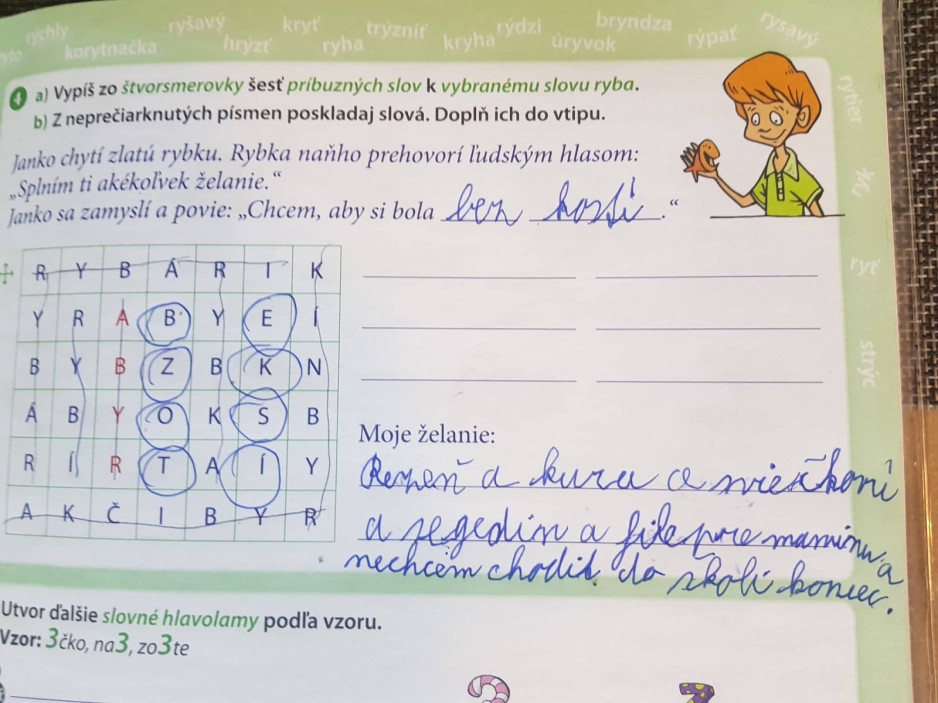 rýchly ryšavý kryť trýzniť rýdzi bryndza rysavý
ryto korytnačka hrýzť ryha kryha úryvok rýpať
4 a) Vypíš zo štvorsmerovky šesť príbuzných slov k vybranému slovu ryba.
b) Z neprečiarknutých písmen poskladaj slová. Doplň ich do vtipu.
rytier
Janko chytí zlatú rybku. Rybka naňho prehovorí ľudským hlasom:
„Splním ti akékoľvek želanie.“
Janko sa zamyslí a povie: „Chcem, aby si bola bez kostí.“
ryť
R Y B Á R I K
Y R A B Y E Í
B Y B Z B K N
Á B Y O K S B
R Í R T A Í Y
A K Č I B Y R
strýc
Moje želanie:
Rezeň a kura a sviečkoní
a segedín a file pre maminu a
nechcem chodiť do školi koniec.
Utvor ďalšie slovné hlavolamy podľa vzoru.
Vzor: 3čko, na3, zo3te